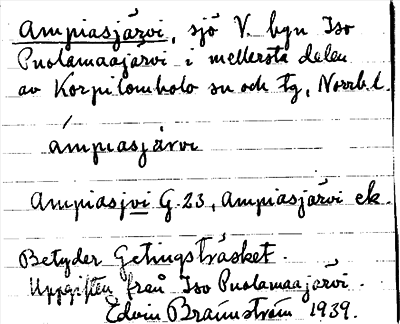 Ampiasjärvi, sjö V. bgn Iso
Puolamaajärvi i mellersta delen
av Korpilombolo sn och tg, Norrb. l.
ámpiasjärvi
Ampiasjvi G. 23, Ampiasjärvi ek.
Betyder Getingsträsket.
Uppgiften från Iso Puolamaajärvi.
Edvin Brännström 1939.